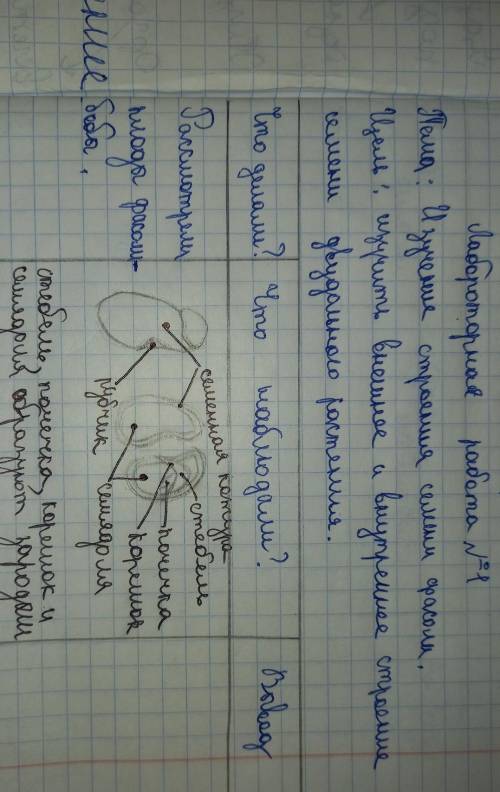 Лабороторная работа №1
Тема: Изучение строения семени фасоли.
Цель: изучить внешнее и внутреннее строение
семени двудольного растения.
Что делали?
Что наблюдали?
Вывод
Рассмотрели
плода фасоли-
бобы.
семенная кожура
рубчик
стебель
почечка
корешок
семядоля
стебель, почечка, корешок и
семядоля образуют зародыш